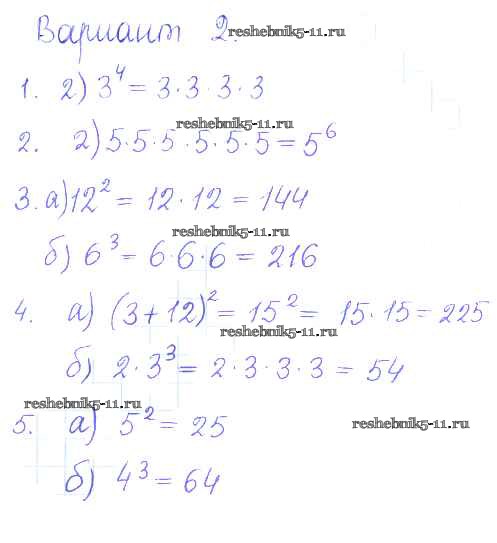 Вариант 2.
reshebnik5-11.ru
1. 2) 3⁴ = 3·3·3·3
reshebnik5-11.ru
2. 2) 5·5·5·5·5·5 = 5⁶
3. а) 12² = 12·12 = 144
reshebnik5-11.ru
б) 6³ = 6·6·6 = 216
4. а) (3+12)² = 15² = 15·15 = 225
reshebnik5-11.ru
б) 2·3³ = 2·3·3·3 = 54
reshebnik5-11.ru
5. а) 5² = 25
reshebnik5-11.ru
б) 4³ = 64